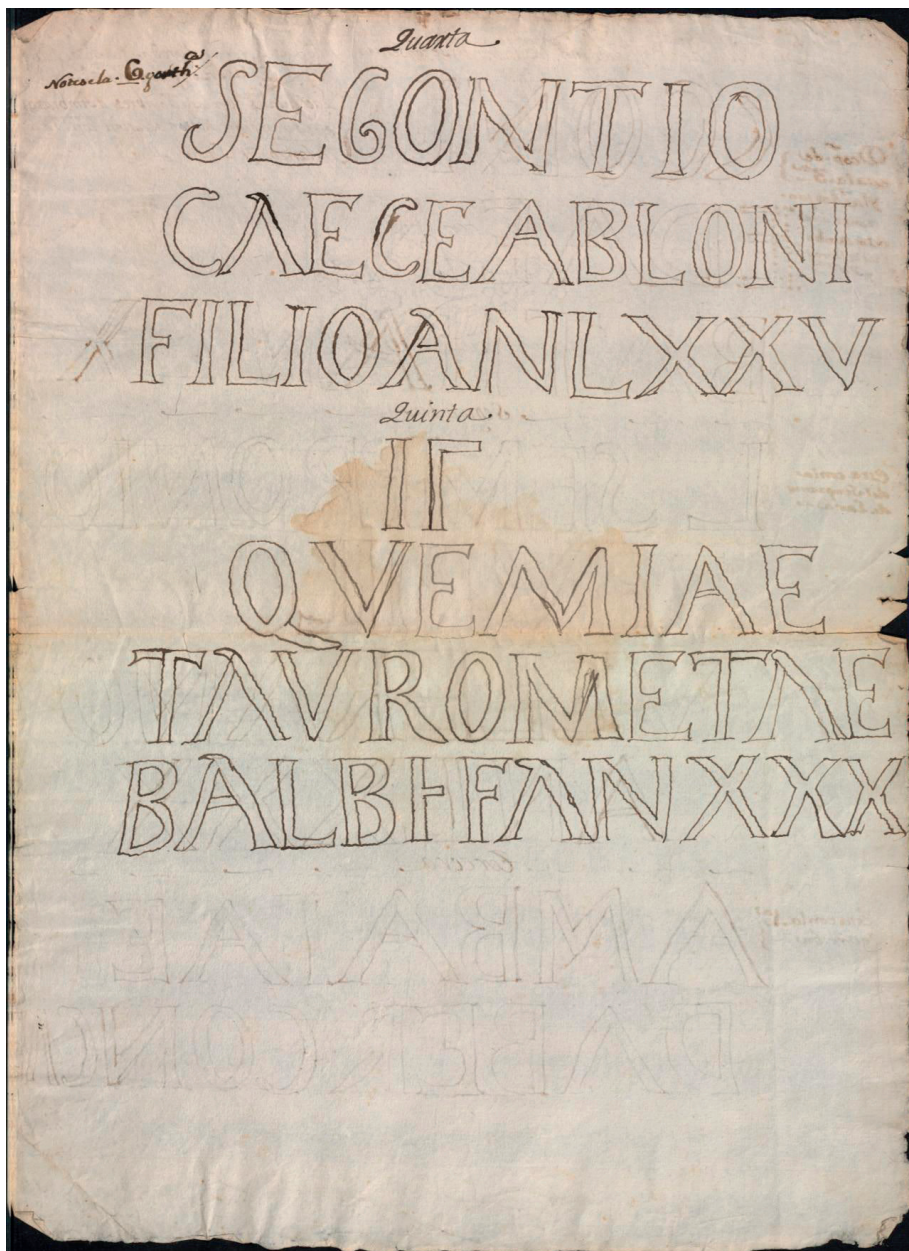 Quarta
SEGONTIO
CAECEABLONI
FILIOANLXXV
Quinta
IΓ
QVEMIAE
TAVROMETAE
BALBHFANXXX